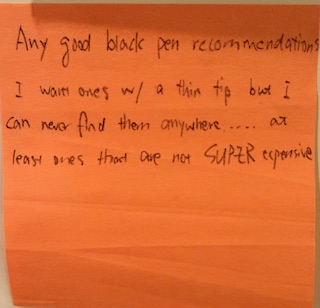 Any good black pen recommendations
I want ones w/ a thin tip but I
can never find them anywhere.... at
least ones that are not SUPER expensive